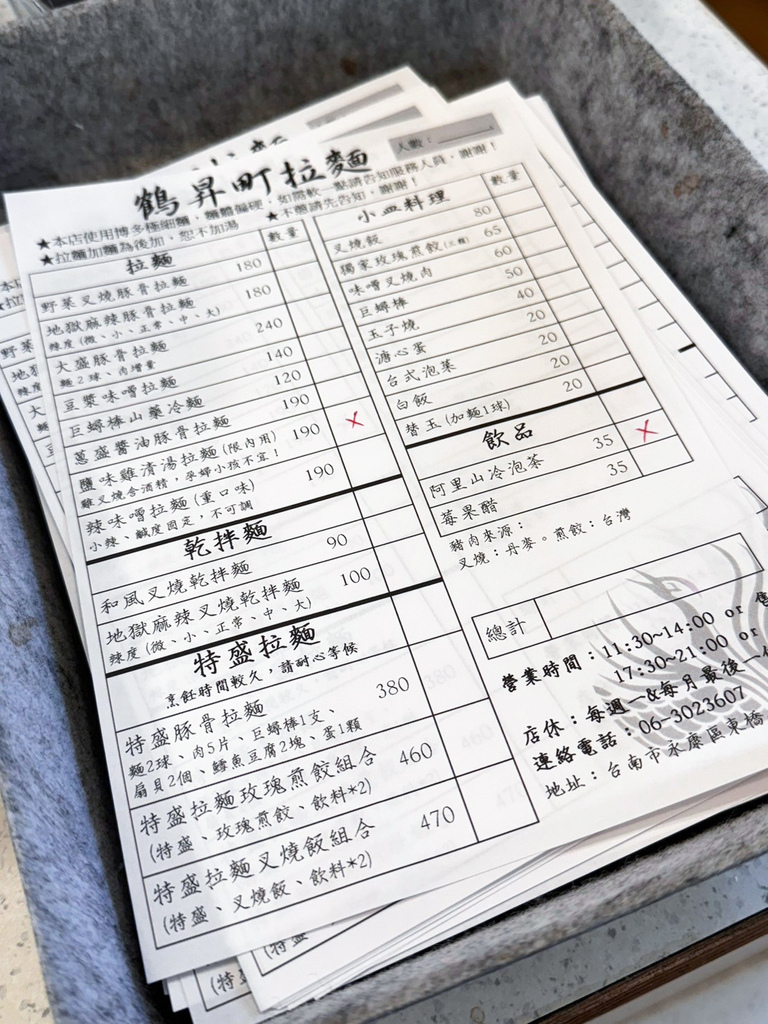 人數：
鶴昇町拉麵
★本店使用博多極細麵，麵體偏硬，如需軟一點請告知服務人員，謝謝！
★拉麵加麵為後加，恕不加湯 ★不蔥請先告知，謝謝！
拉麵 數量
野菜叉燒豚骨拉麵 180
地獄麻辣豚骨拉麵 180
辣度(微、小、正常、中、大)
大盛豚骨拉麵 240
麵2球、肉增量
豆漿味噌拉麵 140
巨蟳棒山藥冷麵 120
蔥盛醬油豚骨拉麵 190
鹽味雞清湯拉麵(限內用) 190 X
雞叉燒含酒精，孕婦小孩不宜！
辣味噌拉麵(重口味) 190
小辣、鹹度固定，不可調
乾拌麵
和風叉燒乾拌麵 90
地獄麻辣叉燒乾拌麵 100
辣度(微、小、正常、中、大)
特盛拉麵
烹飪時間較久，請耐心等候
特盛豚骨拉麵 380
麵2球、肉5片、巨蟳棒1支、
扇貝2個、鱈魚豆腐2塊、蛋1顆
特盛拉麵玫瑰煎餃組合 460
(特盛、玫瑰煎餃、飲料*2)
特盛拉麵叉燒飯組合 470
(特盛、叉燒飯、飲料*2)
小皿料理 數量
叉燒飯 80
獨家玫瑰煎餃(三顆) 65
味噌叉燒肉 60
巨蟳棒 50
玉子燒 40
溏心蛋 20
台式泡菜 20
白飯 20
替玉(加麵1球) 20
飲品
阿里山冷泡茶 35 X
莓果醋 35
豬肉來源：
叉燒：丹麥。煎餃：台灣
總計
營業時間：11:30~14:00 or 售
17:30~21:00 or
店休：每週一&每月最後一
連絡電話：06-3023607
地址：台南市永康區東橋